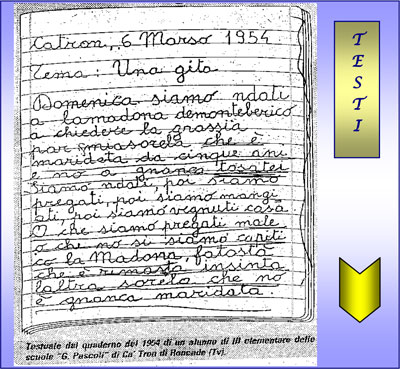 Catron, 6 Marso 1954
Tema: Una gita
Domenica siamo ndati
a lamadona demonteberico
a chiedere la grassia
par miasorela che è
marideta da cinque ani
e no a gnanca tosatei
siamo ndati, poi siamo
pregati, poi siamo mangi
ati, poi siamo vegnuti casa.
O che siamo pregati male
o che no si siamo capiti
co la Madona, fatostà
che è rimasta insinta
laltra sorela che no
è gnanca maridata.
Testuale dal quaderno del 1954 di un alunno di III elementare delle
scuole "G. Pascoli" di Ca' Tron di Roncade (Tv).
TESTI